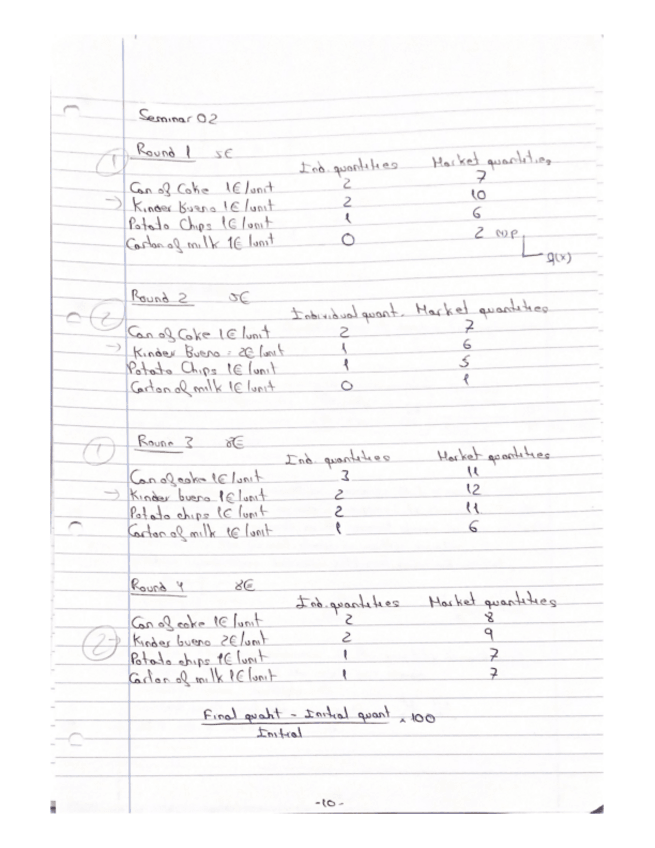 Seminar 02
① Round 1 5€
Ind. quantities Market quantities
Can of Coke 1€/unit 2 7
→ Kinder Bueno 1€/unit 2 10
Potato Chips 1€/unit 1 6
Carton of milk 1€/unit 0 2
p
q(x)
② Round 2 5€
Individual quant. Market quantities
Can of Coke 1€/unit 2 7
→ Kinder Bueno: 2€/unit 1 6
Potato Chips 1€/unit 1 5
Carton of milk 1€/unit 0 1
① Round 3 8€
Ind quantities Market quantities
Can of coke 1€/unit 3 11
→ Kinder bueno 1€/unit 2 12
Potato chips 1€/unit 2 11
Carton of milk 1€/unit 1 6
Round 4 8€
Ind. quantities Market quantities
Can of coke 1€/unit 2 8
② → Kinder bueno 2€/unit 2 9
Potato chips 1€/unit 1 7
Carton of milk 1€/unit 1 7
Final quant - Initial quant × 100
Initial
-10-